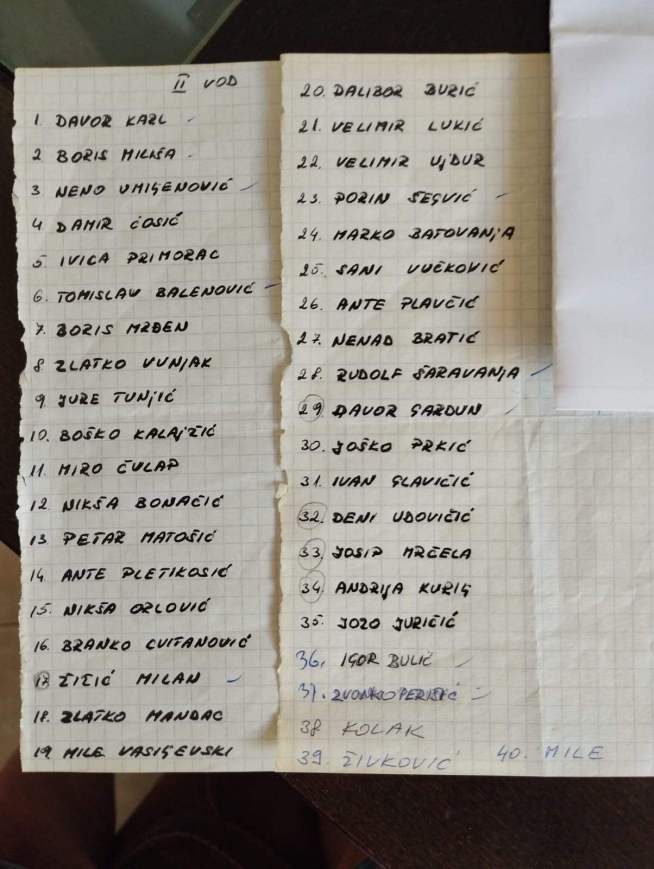 II VOD
1. DAVOR KARL
2 BORIS MILIŠA
3 NENO UMIGENOVIĆ
4 DAMIR ĆOSIĆ
5. IVICA PRIMORAC
6. TOMISLAV BALENOVIĆ
7. BORIS MRĐEN
8 ZLATKO VUNJAK
9. JURE TUNJIĆ
10. BOŠKO KALAJŽIĆ
11. MIRO ČULAP
12 NIKŠA BONAČIĆ
13 PETAR MATOŠIĆ
14. ANTE PLETIKOSIĆ
15. NIKŠA ORLOVIĆ
16. BRANKO CVITANOVIĆ
17 ŽIŽIĆ MILAN
18. ZLATKO MANDAC
19. MILE VASIGEVSKI
20. DALIBOR BURIĆ
21. VELIMIR LUKIĆ
22. VELIMIR UJDUR
23. PORIN ŠEGVIĆ
24. MARKO BATOVANJA
25. SANI VUČKOVIĆ
26. ANTE PLAVČIĆ
27. NENAD BRATIĆ
28. RUDOLF ŠARAVANJA
29. DAVOR GARDUN
30. JOŠKO PRKIĆ
31. IVAN GLAVIČIĆ
32. DENI UDOVIČIĆ
33. JOSIP MRČELA
34. ANDRIJA KURIG
35. JOZO JURIČIĆ
36. IGOR BULIĆ
37. ZVONKO
38 KOLAK
39. ŽIVKOVIĆ 40. MILE